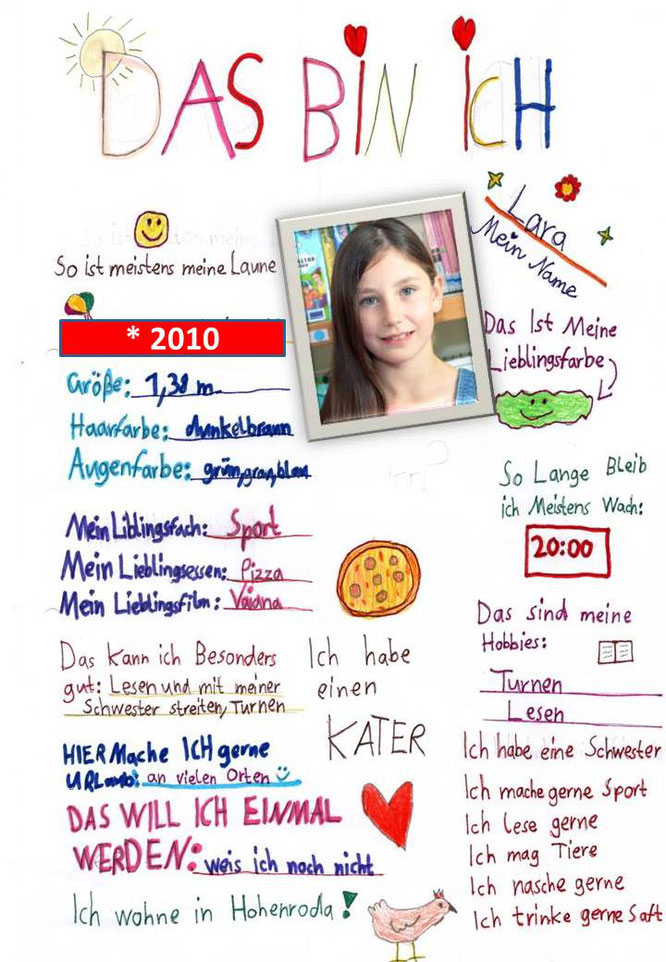 DAS BiN icH
So ist meistens meine Laune
* 2010
Größe: 1,38 m
Haarfarbe: dunkelbraun
Augenfarbe: grün, grau, blau
Lara
Mein Name
Das Ist Meine
Lieblingsfarbe
So Lange Bleib
ich Meistens Wach:
20:00
Mein Liblingsfach: Sport
Mein Lieblingsessen: Pizza
Mein Lieblingsfilm: Vaiana
Das sind meine
Hobbies:
Turnen
Lesen
Das Kann ich Besonders
gut: Lesen und mit meiner
Schwester streiten, Turnen
Ich habe
einen
KATER
HIER Mache ICH gerne
URLaub: an vielen Orten
DAS WILL ICH EINMAL
WERDEN: weis ich noch nicht
Ich wohne in Hohenrodla!
Ich habe eine Schwester
Ich mache gerne Sport
Ich lese gerne
Ich mag Tiere
Ich nasche gerne
Ich trinke gerne Saft